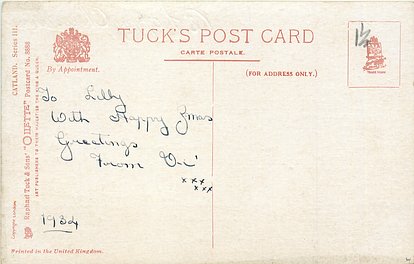 TUCK'S POST CARD
CARTE POSTALE.
(FOR ADDRESS ONLY.)
By Appointment.
GATLAND. Series III.
Raphael Tuck & Sons' "OILETTE" Postcard No. 8885
ART PUBLISHERS TO THEIR MAJESTIES THE KING & QUEEN.
Copyright
1½
To Lilly
With Happy Xmas
Greetings
From
xxx
xxx
1934
Printed in the United Kingdom.